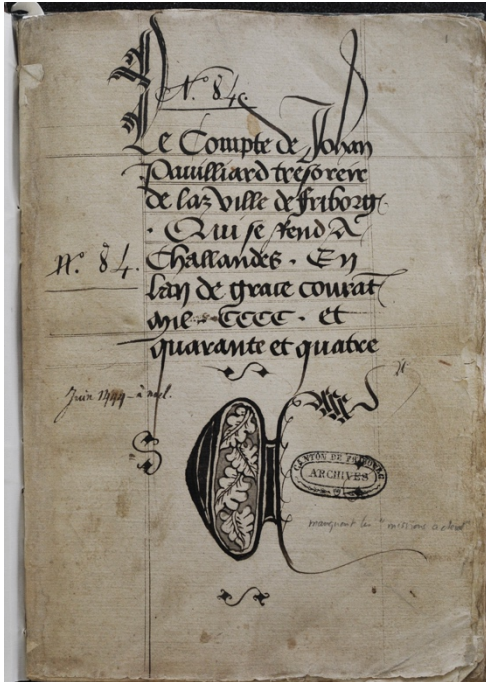 N.º 84.
Le Compte de Johan
Pavilliard tresoreir
de laz Ville de Friborg.
. Qui se Rend A
Challandes . En
lan de grace courāt
mil CCCC . et
quarante et quatre
N.º 84.
Juin 1444 - à noel.
CANTON DE FRIBOURG
ARCHIVES
manquent les "missions à cheval"